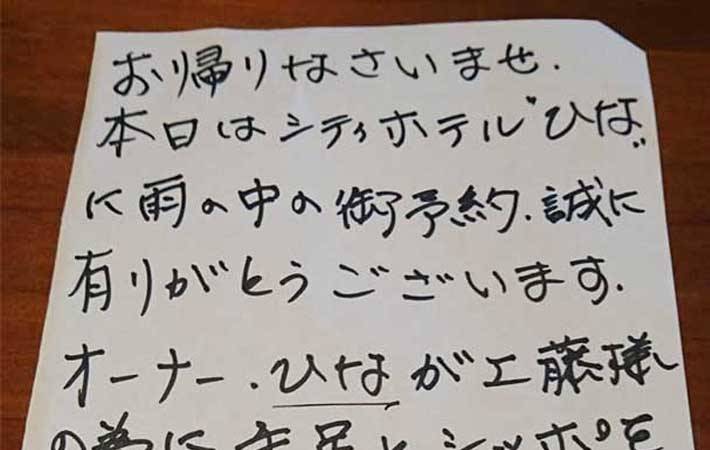 お帰りなさいませ.
本日はシティホテル"ひな"
に雨の中の御予約.誠に
有りがとうございます.
オーナー.ひなが工藤様
の為に手足とシッポを